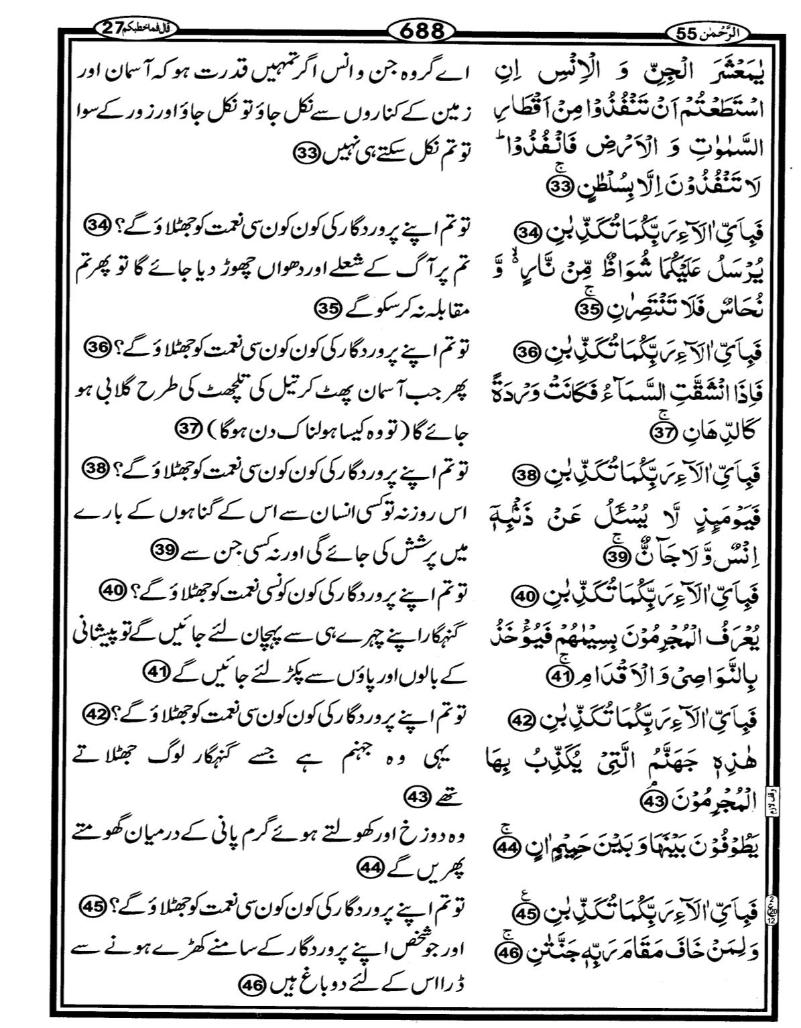 الرَّحْمٰن 55
688
قال فما خطبکم 27
يٰمَعْشَرَ الْجِنِّ وَ الْاِنْسِ اِنِ
اسْتَطَعْتُمْ اَنْ تَنْفُذُوْا مِنْ اَقْطَارِ
السَّمٰوٰتِ وَ الْاَرْضِ فَانْفُذُوْا ؕ
لَا تَنْفُذُوْنَ اِلَّا بِسُلْطٰنٍ ۚ 33
فَبِاَيِّ اٰلَآءِ رَبِّكُمَا تُكَذِّبٰنِ 34
يُرْسَلُ عَلَيْكُمَا شُوَاظٌ مِّنْ نَّارٍ ۙ وَّ
نُحَاسٌ فَلَا تَنْتَصِرٰنِ ۚ 35
فَبِاَيِّ اٰلَآءِ رَبِّكُمَا تُكَذِّبٰنِ 36
فَاِذَا انْشَقَّتِ السَّمَآءُ فَكَانَتْ وَرْدَةً
كَالدِّهَانِ ۚ 37
فَبِاَيِّ اٰلَآءِ رَبِّكُمَا تُكَذِّبٰنِ 38
فَيَوْمَئِذٍ لَّا يُسْـَٔلُ عَنْ ذَنْۢبِهٖۤ
اِنْسٌ وَّ لَا جَآنٌّ ۚ 39
فَبِاَيِّ اٰلَآءِ رَبِّكُمَا تُكَذِّبٰنِ 40
يُعْرَفُ الْمُجْرِمُوْنَ بِسِيْمٰهُمْ فَيُؤْخَذُ
بِالنَّوَاصِيْ وَ الْاَقْدَامِ ۚ 41
فَبِاَيِّ اٰلَآءِ رَبِّكُمَا تُكَذِّبٰنِ 42
هٰذِهٖ جَهَنَّمُ الَّتِيْ يُكَذِّبُ بِهَا
الْمُجْرِمُوْنَ ۘ 43
يَطُوْفُوْنَ بَيْنَهَا وَ بَيْنَ حَمِيْمٍ اٰنٍ ۚ 44
فَبِاَيِّ اٰلَآءِ رَبِّكُمَا تُكَذِّبٰنِ 45
وَ لِمَنْ خَافَ مَقَامَ رَبِّهٖ جَنَّتٰنِ ۚ 46
اے گروہ جن و انس اگر تمہیں قدرت ہو کہ آسمان اور
زمین کے کناروں سے نکل جاؤ تو نکل جاؤ اور زور کے سوا
تو تم نکل سکتے ہی نہیں 33
تو تم اپنے پروردگار کی کون کون سی نعمت کو جھٹلاؤ گے؟ 34
تم پر آگ کے شعلے اور دھواں چھوڑ دیا جائے گا تو پھر تم
مقابلہ نہ کرسکو گے 35
تو تم اپنے پروردگار کی کون کون سی نعمت کو جھٹلاؤ گے؟ 36
پھر جب آسمان پھٹ کر تیل کی تلچھٹ کی طرح گلابی ہو
جائے گا (تو وہ کیسا ہولناک دن ہوگا) 37
تو تم اپنے پروردگار کی کون کون سی نعمت کو جھٹلاؤ گے؟ 38
اس روز نہ تو کسی انسان سے اس کے گناہوں کے بارے
میں پرسش کی جائے گی اور نہ کسی جن سے 39
تو تم اپنے پروردگار کی کون کونسی نعمت کو جھٹلاؤ گے؟ 40
گنہگار اپنے چہرے ہی سے پہچان لئے جائیں گے تو پیشانی
کے بالوں اور پاؤں سے پکڑ لئے جائیں گے 41
تو تم اپنے پروردگار کی کون کون سی نعمت کو جھٹلاؤ گے؟ 42
یہی وہ جہنم ہے جسے گنہگار لوگ جھٹلاتے
تھے 43
وہ دوزخ اور کھولتے ہوئے گرم پانی کے درمیان گھومتے
پھریں گے 44
تو تم اپنے پروردگار کی کون کون سی نعمت کو جھٹلاؤ گے؟ 45
اور جو شخص اپنے پروردگار کے سامنے کھڑے ہونے سے
ڈرا اس کے لئے دو باغ ہیں 46
وقف لازم